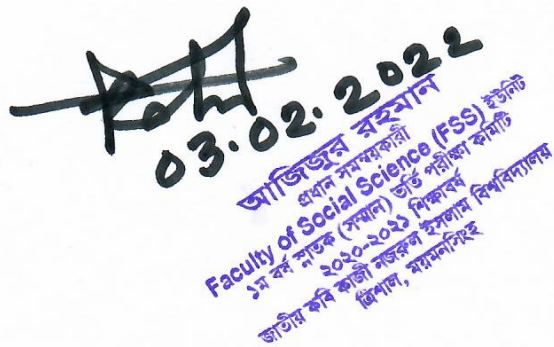 03.02.2022
আজিজুর রহমান
প্রধান সমন্বয়কারী
Faculty of Social Science (FSS) ইউনিট
১ম বর্ষ স্নাতক (সম্মান) ভর্তি পরীক্ষা কমিটি
২০২০-২০২১ শিক্ষাবর্ষ
জাতীয় কবি কাজী নজরুল ইসলাম বিশ্ববিদ্যালয়
ত্রিশাল, ময়মনসিংহ